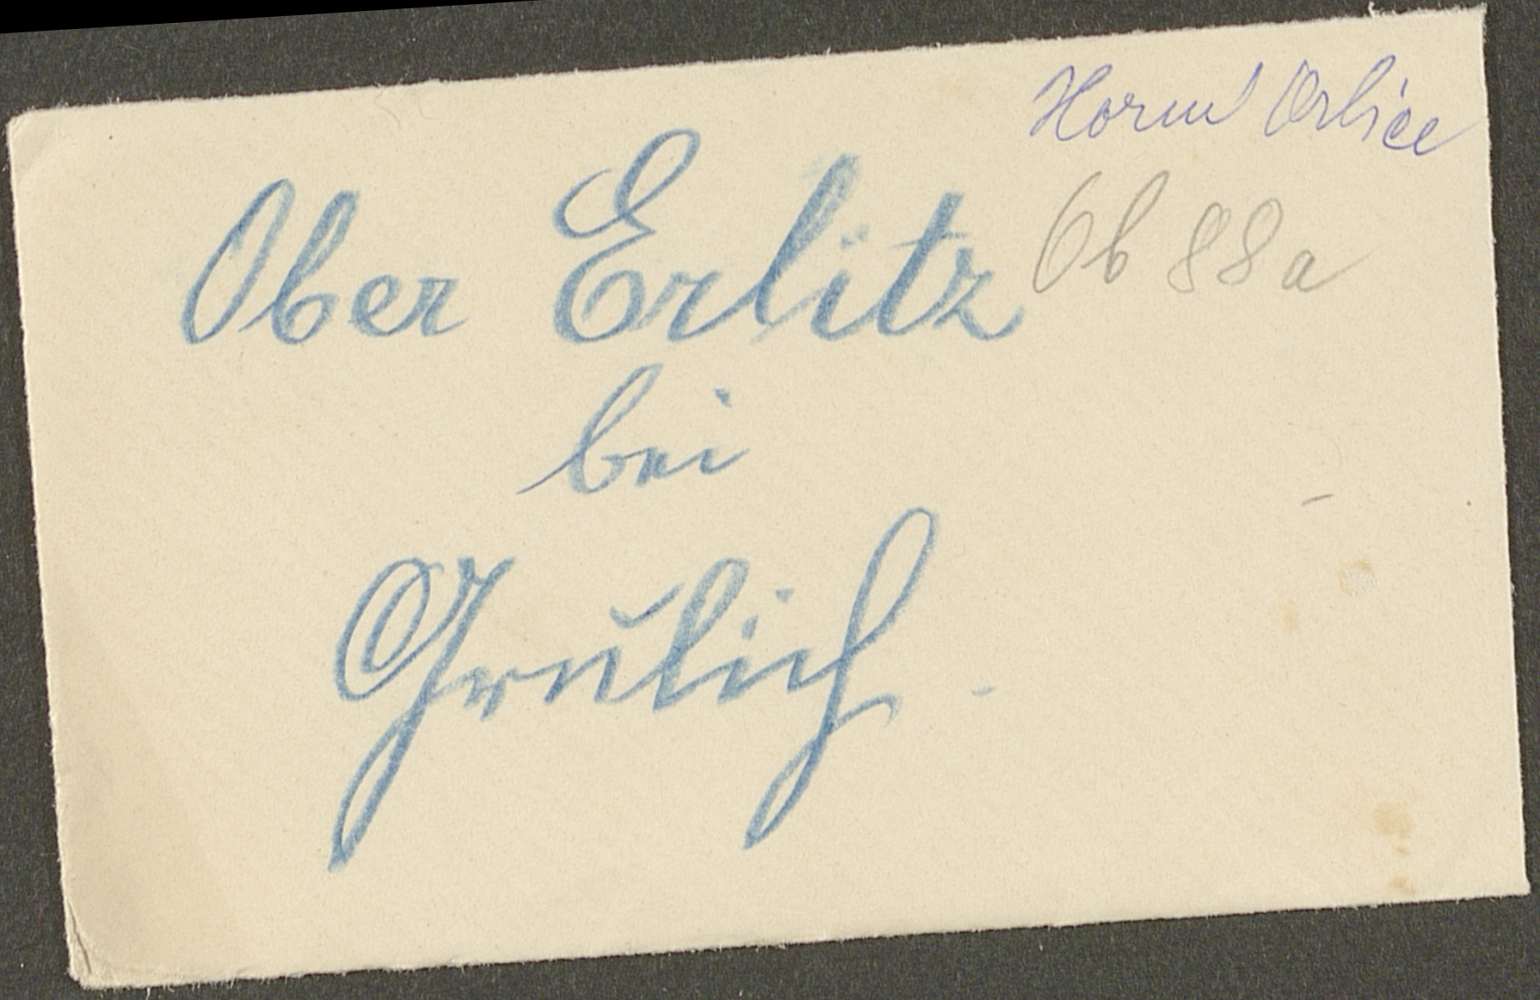 Horní Orlice
Ober Erlitz
Ob 88a
bei
Grulich.